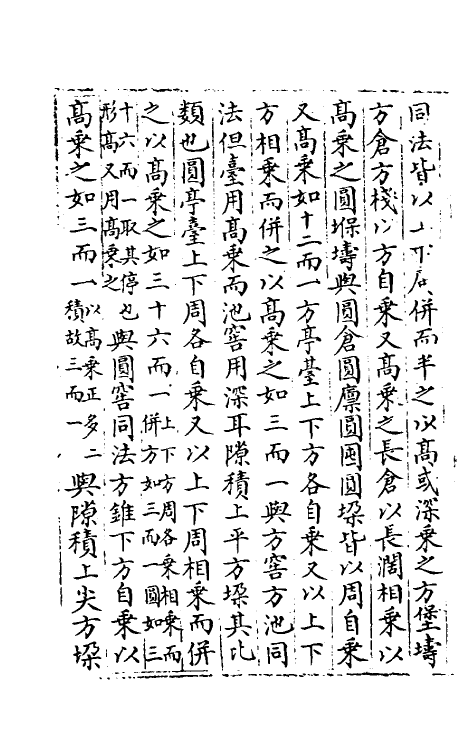 同法皆以上下広併而半之以高或深乘之方堡壔
方倉方棧以方自乘又高乘之長倉以長濶相乘以
高乘之圓堢壔與圓倉圓廪圓囤圓垜皆以周自乘
又高乘如十二而一方亭䑓上下方各自乘又以上下
方相乘而併之以高乘之如三而一與方窖方池同
法但䑓用高乘而池窖用深耳隙積上平方垜其比
類也圓亭䑓上下周各自乘又以上下周相乘而併
之以高乘之如三十六而一上下方周各乘相乘而
併方如三而一圓如三
十六而一取其停也
形高又用高乘之與圓窖同法方錐下方自乘以
高乘之如三而一以高乘正多二
積故三而一與隙積上尖方垜